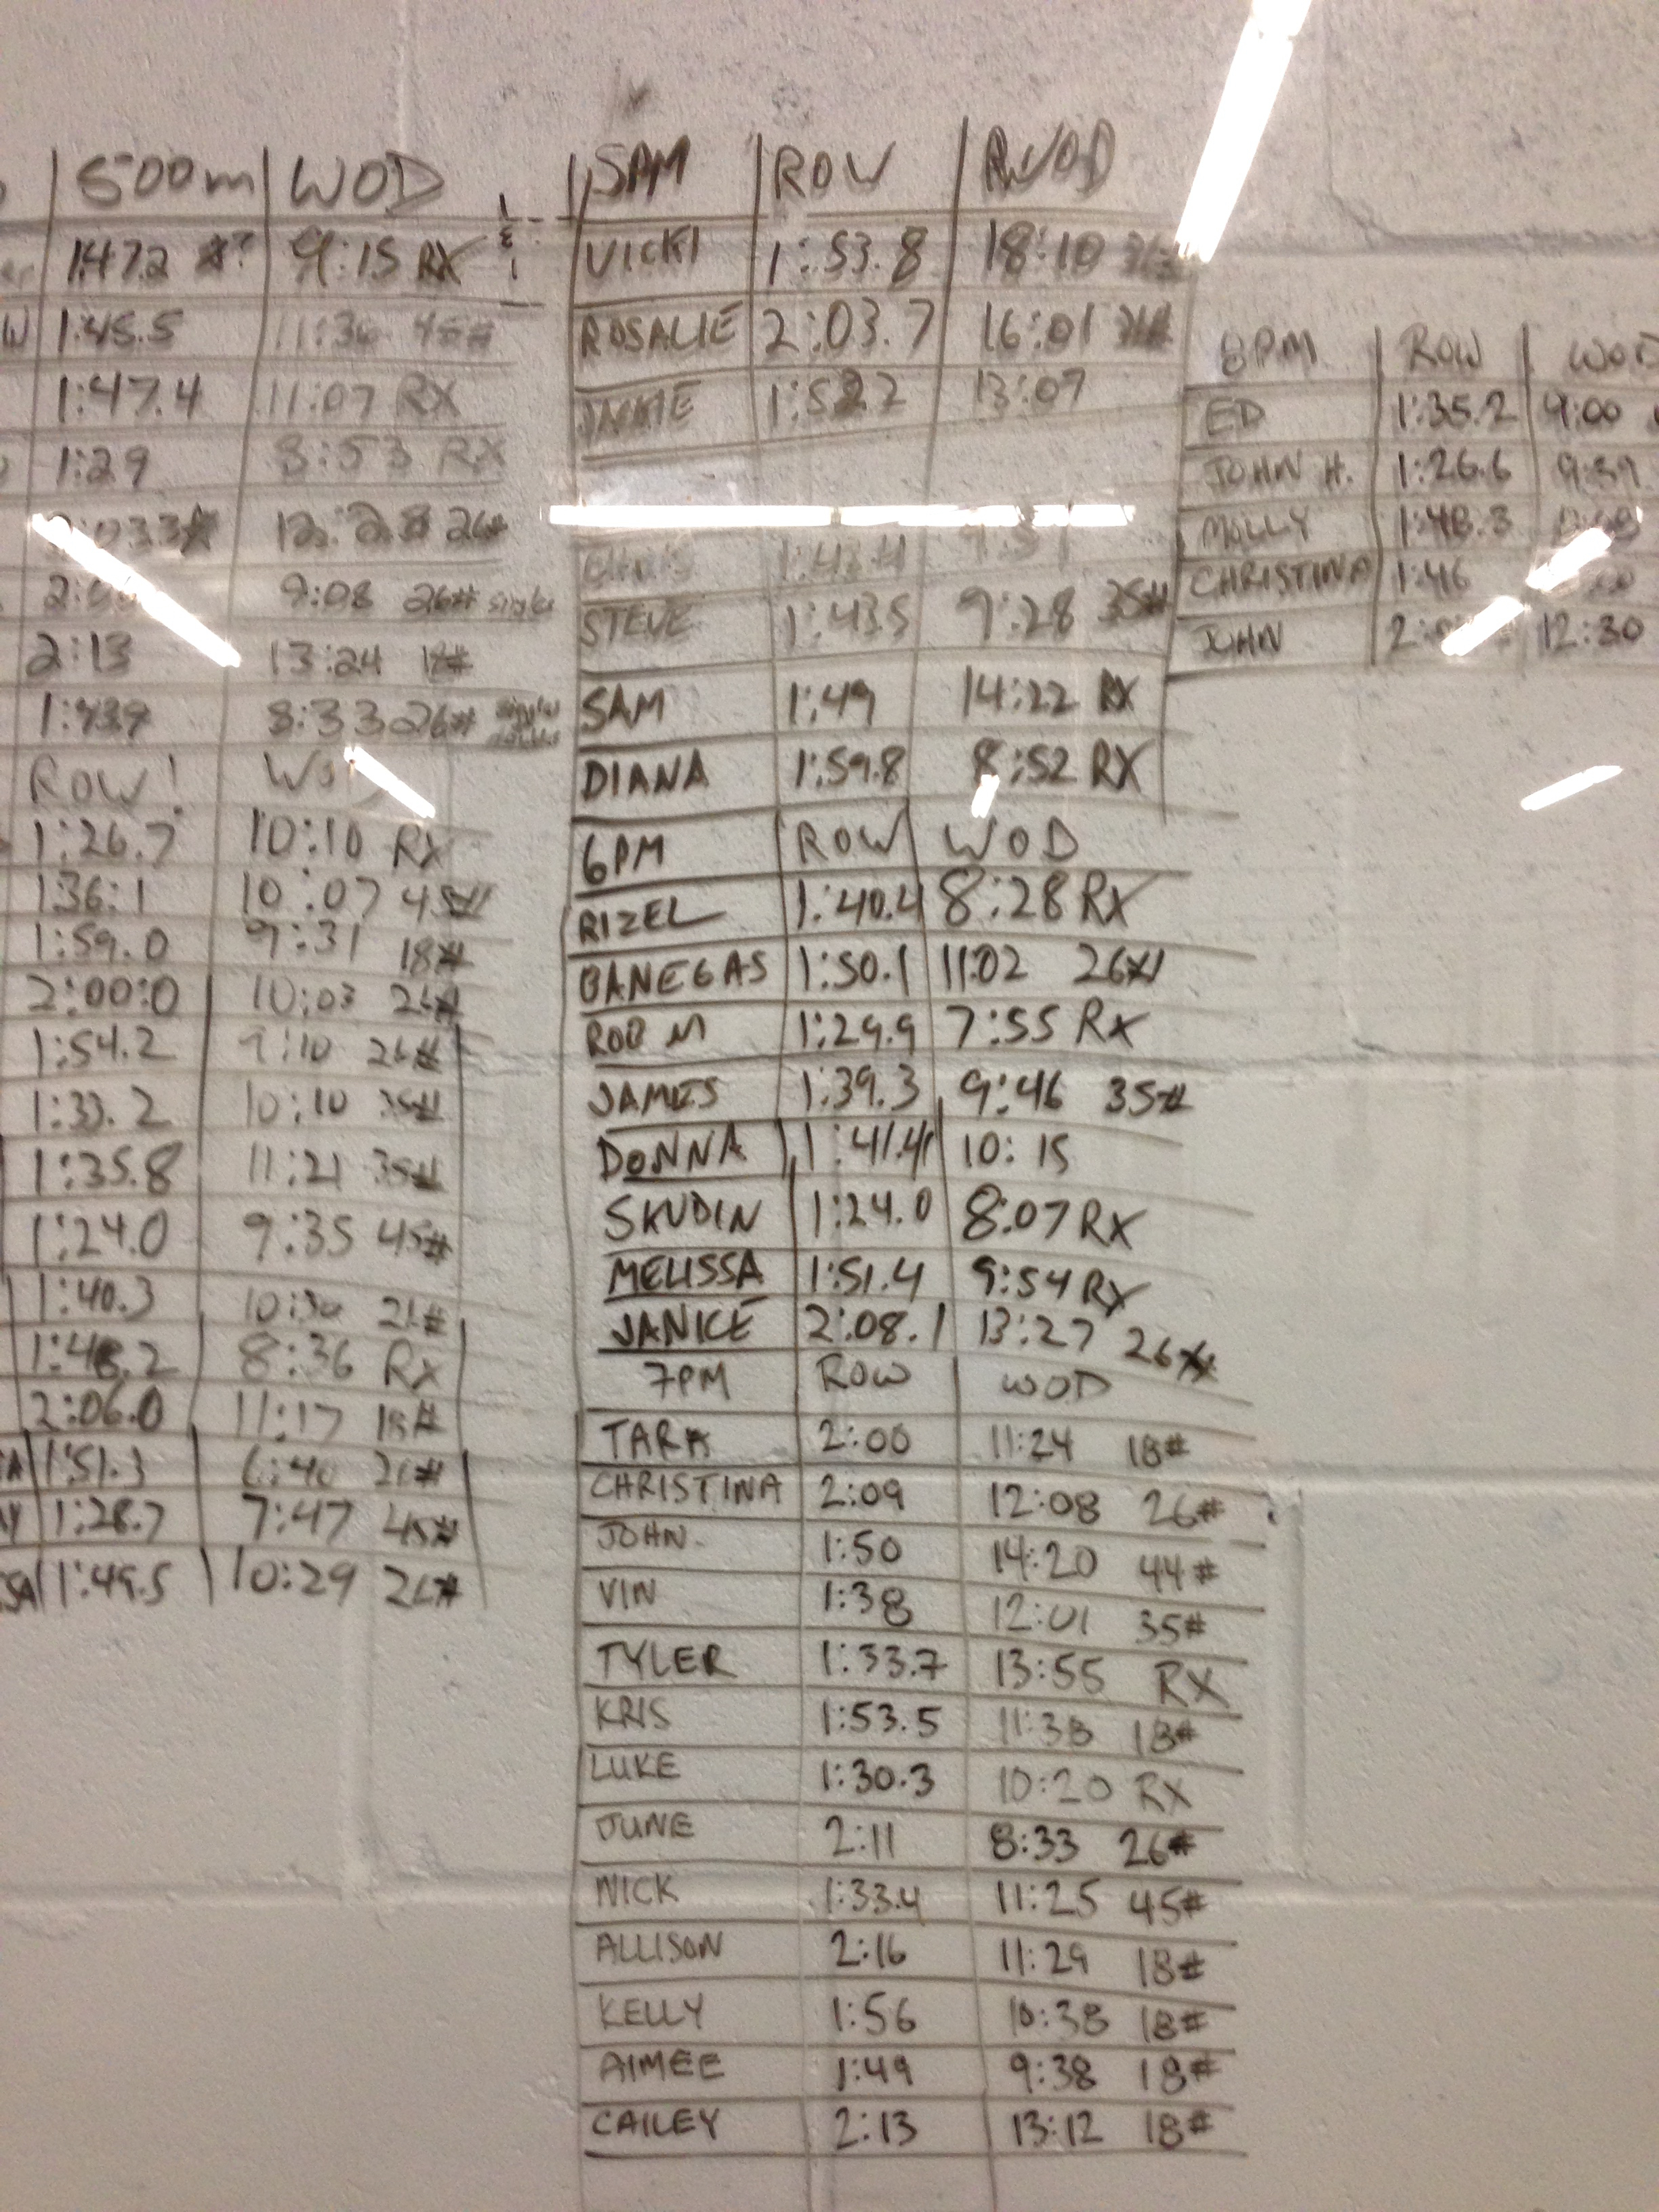 500m WOD
1:47.2 9:15 RX
1:45.5 11:36 45#
1:47.4 11:07 RX
1:29 8:53 RX
12:28 26#
9:08 26# single
2:13 13:24 18#
1:43.9 8:33 26#
ROW!
1:26.7 10:10 RX
1:36:1 10:07 45#
1:59.0 9:31 18#
2:00:0 10:03 26#
1:54.2 9:10 26#
1:33.2 10:10 35#
1:35.8 11:21 35#
1:24.0 9:35 45#
1:40.3 10:30
1:48.2 8:36 RX
2:06.0 11:17 18#
1:51.3 6:40 26#
1:28.7 7:47 45#
1:49.5 10:29 26#
ROW WOD
VICKI 1:53.8 18:10
ROSALIE 2:03.7 16:01
JACKIE 13:07
CHRIS 1:43.4
STEVE 1:43.5 9:28 35#
SAM 1:49 14:22 RX
DIANA 1:59.8 8:52 RX
6PM ROW WOD
RIZEL 1:40.4 8:28 RX
BANEGAS 1:50.1 11:02 26#
ROB M 1:29.9 7:55 RX
JAMES 1:39.3 9:46 35#
DONNA 1:41.4 10:15
SKUDIN 1:24.0 8:07 RX
MELISSA 1:51.4 9:54 RX
JANICE 2:08.1 13:27 26#
7PM ROW WOD
TARA 2:00 11:24 18#
CHRISTINA 2:09 12:08 26#
JOHN 1:50 14:20 44#
VIN 1:38 12:01 35#
TYLER 1:33.7 13:55 RX
KRIS 1:53.5 11:38 18#
LUKE 1:30.3 10:20 RX
JUNE 2:11 8:33 26#
NICK 1:33.4 11:25 45#
ALLISON 2:16 11:29 18#
KELLY 1:56 10:38 18#
AIMEE 1:49 9:38 18#
CAILEY 2:13 13:12 18#
8PM ROW WOD
ED 1:35.2 9:00
JOHN H. 1:26.6 9:39
MOLLY 1:48.3
CHRISTINA 1:46
JOHN 12:30